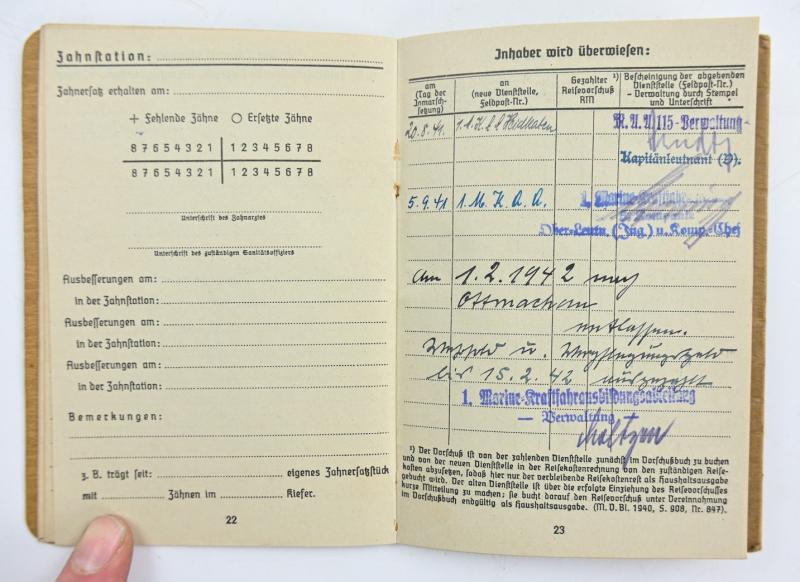 Zahnstation:
Zahnersatz erhalten am:
+ Fehlende Zähne ○ Ersetzte Zähne
8 7 6 5 4 3 2 1 1 2 3 4 5 6 7 8
8 7 6 5 4 3 2 1 1 2 3 4 5 6 7 8
Unterschrift des Zahnarztes
Unterschrift des zuständigen Sanitätsoffiziers
Ausbesserungen am:
in der Zahnstation:
Ausbesserungen am:
in der Zahnstation:
Ausbesserungen am:
in der Zahnstation:
Bemerkungen:
z. B. trägt seit: eigenes Zahnersatzstück
mit Zähnen im Kiefer.
22
Inhaber wird überwiesen:
am (Tag der Inmarschsetzung)
an (neue Dienststelle, Feldpost-Nr.)
Gezahlter Reisevorschuß ¹) RM
Bescheinigung der abgebenden Dienststelle (Feldpost-Nr.) - Verwaltung durch Stempel und Unterschrift
20.8.41. 1.
M.A.A 115-Verwaltung-
Kapitänleutnant (V).
5.9.41 1. M. K. A. A.
1. Marine-Kraftfahr
Ober-Leutn. (Ing.) u. Komp.-Chef
Am 1.2.1942 nach
Ottmachau
entlassen.
Wehrsold u. Verpflegungsgeld
bis 15.2.42 ausgezahlt
1. Marine-Kraftfahrausbildungsabteilung
— Verwaltung —
¹) Der Vorschuß ist von der zahlenden Dienststelle zunächst im Vorschußbuch zu buchen
und von der neuen Dienststelle in der Reisekostenrechnung von den zuständigen Reise-
kosten abzusetzen, sodaß hier nur der verbleibende Reisekostenrest als Haushaltsausgabe
gebucht wird. Der alten Dienststelle ist über die erfolgte Einziehung des Reisevorschusses
kurze Mitteilung zu machen; sie bucht darauf den Reisevorschuß unter Vereinnahmung
im Vorschußbuch endgültig als Haushaltsausgabe. (M. V. Bl. 1940, S. 908, Nr. 847).
23